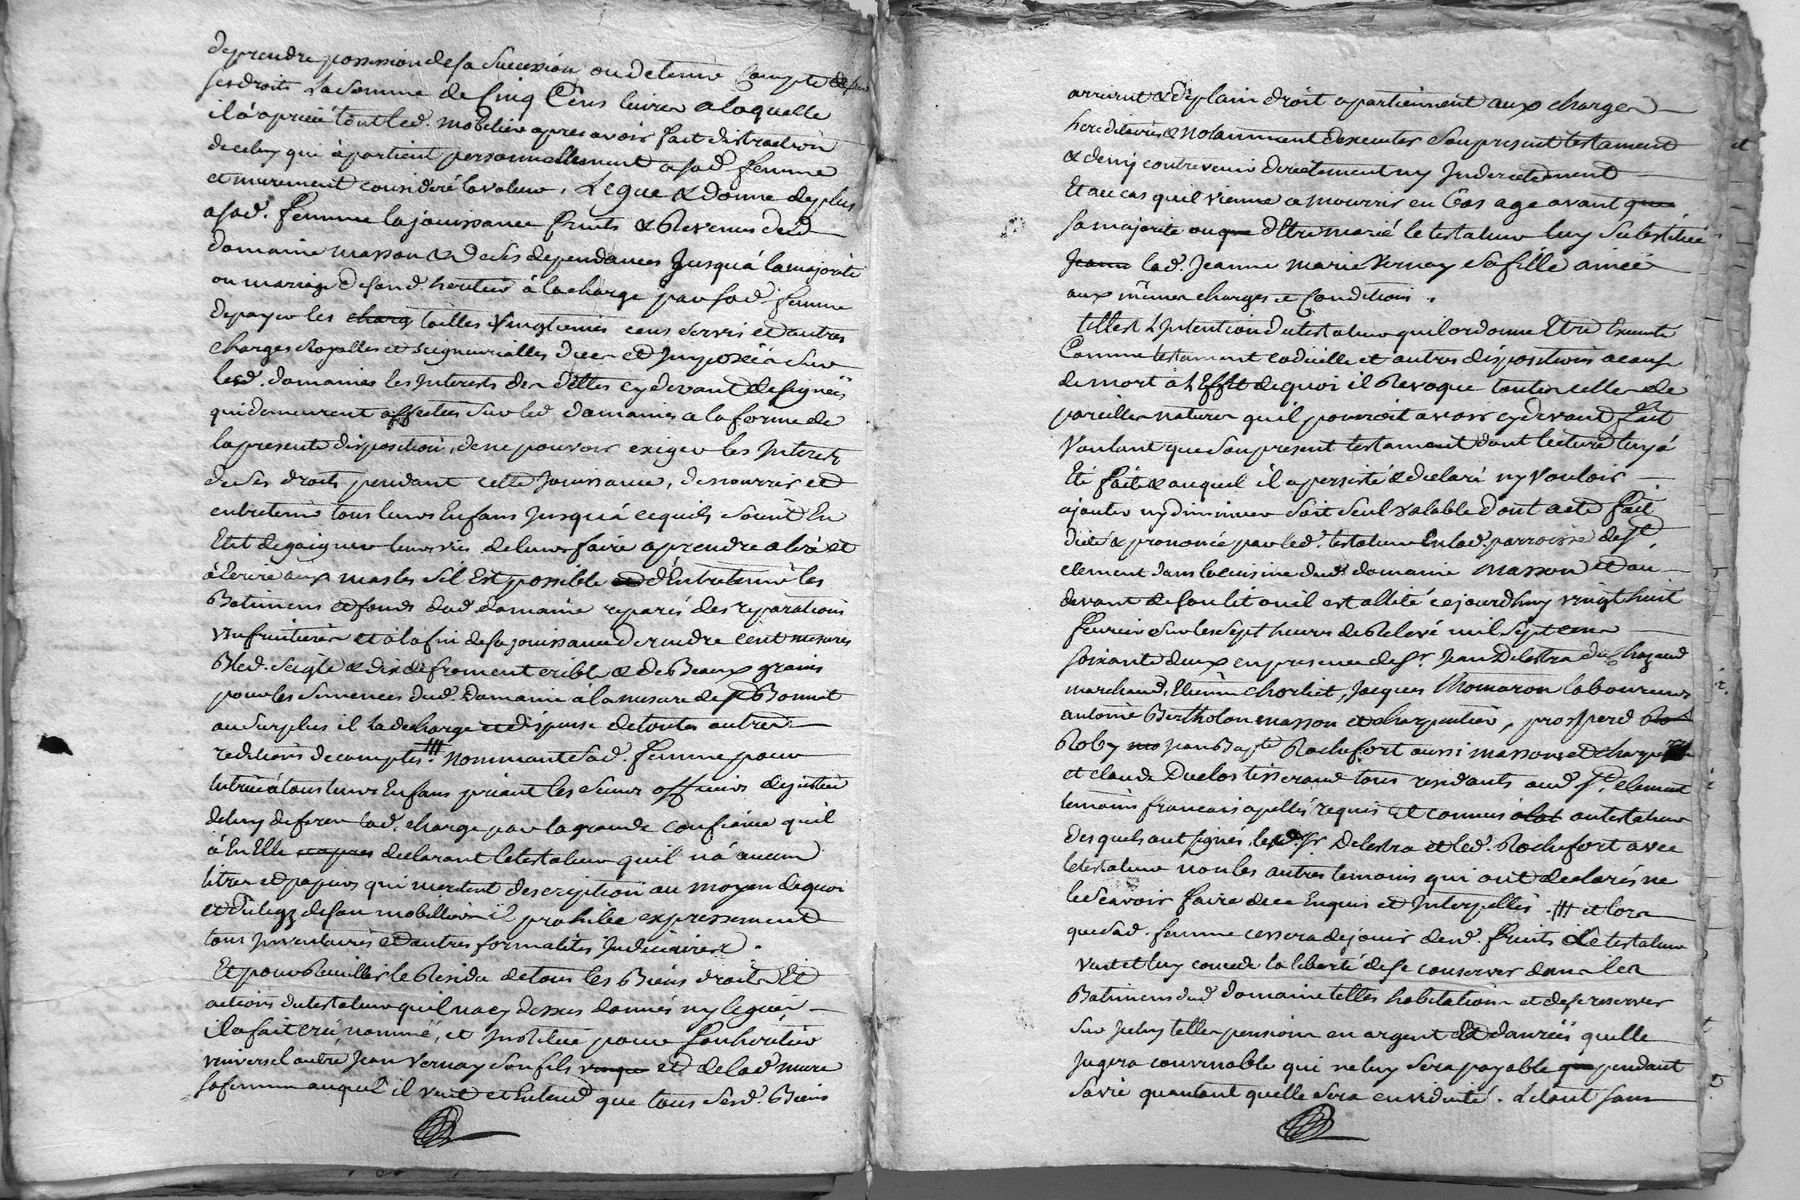 deprendre possession desa Succession ou detenir Compte de ses
ses droits La Somme de Cinq Cens livres a laquelle
il a aprecié tout led. mobilier apres avoir fait distraction
deceluy qui apartient personnellement a sad. femme
et murement consideré la valeur, Legue & donne deplus
a sad. femme la jouissance fruits & Revenus dud.
domaine masson & de ses dependances Jusquá la majorité
ou mariage de sond. heritier à la charge par sad. femme
de payer les charg tailles Vingtiemes cens servis et autres
charges Royalles et seigneurialles dues et Imposées Sur
lesd. domaines les Interests des dettes cydevant designées
qui demeurent affectées Sur led. domaines a la forme de
la presente disposition, de ne pouvoir exiger les Interets
de Ses droits pendant cette Jouissance, de nourrir et
entretenir tous leurs Enfans Jusquá cequils Soient En
Etat de gaigner leurs vies de leurs faire aprendre a lire et
à Ecrire aux masles Sil Est possible et d'Entretenir les
Batimens et fonds dud. domaine reparés des reparations
Vsufruitieres et a la fin desa jouissance de rendre cent mesures
Bled. Seigle & dix de froment crible & de Beaux grains
pour les Semences dud. Domaine à la mesure de St Bonnet
au Surplus il La decharge et dispense de toutes autres
reditions de comptes /// nommant Sad. femme pour
tutrice á tous leurs Enfans priant les Sieurs officiers de justice
de luy deferer lad. charge par la grande confiance qu'il
à En Elle et apres declarant le testateur qu'il ná aucun
titres et papiers qui meritent description au moyen de quoi
et du legz de son mobilier il prohibe expressement
tous Inventaires et autres formalités Judiciaires.
Et pour Reuillir le Residu de tous les Biens droits Et
actions du testateur quil na cy dessus donnés ny legués
il a fait créé nommé, et Institué pour Son heritier
vniversel autre Jean Vernay Son fils unique et de lad. mure
sa femme auquel il veut et Entend que tous Sesd. Biens
arrivent & de plain droit apartiennent aux charges
hereditaires & Notamment dexecuter Son present testament
& deny contrevenir directement ny Indirectement
Et au cas quil vienne a mourrir en bas age avant que
sa majorité ou que dEtre marié le testateur luy Substitue
Jeanne lad. Jeanne marie Vernay Sa fille ainée
aux mêmes charges & Conditions.
telle est l'Intention du testateur quil ordonne Etre Executé
Comme testament codicille et autres dispositions acause
de mort à l'Effet de quoi il Revoque toutes celles de
pareilles natures qu'il pourroit avoir cydevant fait
Voulant que Son present testament dont lecture luy á
Eté faite & auquel il a persisté & declaré ny Vouloir
ajouter ny diminuer Soit Seul valable Dont acte fait
dicté & prononcé par led. testateur En lad. parroisse de St.
clement dans la cuisine dud. domaine Masson et au
devant de son lit ou il est allité ce jourdhuy vingt huit
feurier Sur les Sept heures de Relevé mil Sept cens
soixante deux en presence de Sr. Jean Delestra du Chazaud
marchand, Etienne Chorliet, Jacques Thomaron laboureurs
antoine Bertholon masson et charpentier, prosperd Rob
Roby mo Jean Bapte. Rochefort aussi masson et charpentier
et claude Duclos tisserand tous residants aud. St. clement
temoins francois apellés requis Et connus a lot au testateur
desquels ont signés lesd. Sr Delestra et led. Rochefort avec
le testateur non les autres temoins qui ont declarés ne
le Scavoir faire de ce Enquis et Interpellés. /// et lors
que Sad. femme cessera de jouir desd. fruits Le testateur
veut et luy concede la liberté de se conserver dans les
Batimens dud. domaine telles habitations et de se reserver
Sur Iceluy telles pensions en argent Et danrées quelle
Jugera convenable qui ne luy Sera payable que pendant
Sa vie quautant quelle Sera en viduité. Letout sans